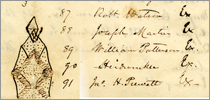 87 Robt. Watson Ex
88 Joseph Martin Ex
89 William Patterson Ex
90 Ex
91 Jno. H. Prewett Ex